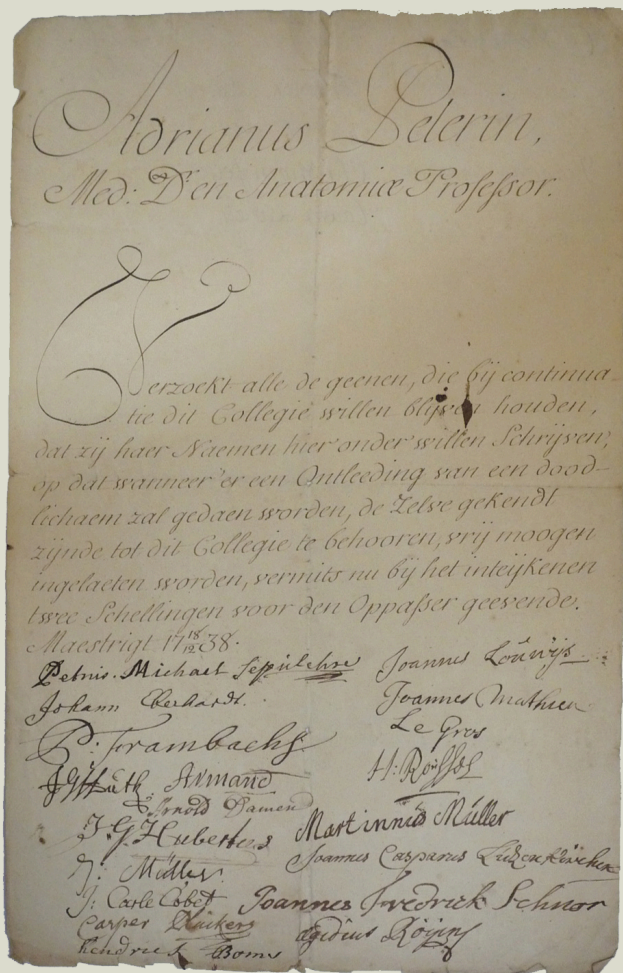 Adrianus Pelerin,
Med: Dr. en Anatomiæ Professor.
Verzoekt alle de geenen, die bij continua-
tie dit Collegie willen blijven houden,
dat zij haer Naemen hier onder willen Schrijven,
op dat wanneer'er een Ontleeding van een dood-
lichaem zal gedaen worden, de Zelve gekendt
zijnde tot dit Collegie te behooren, vrij moogen
ingelaeten worden, vermits nu bij het inteijkenen
twee Schellingen voor den Oppasser geevende.
Maestrigt 17 18/12 38.
Petrus Michael Sepulchre
Johann Eberhardt.
P: Frambachs
Armand
Arnold Damen
J. G. Huberts
J: Müller
J: Carle Cobet
Casper
hendrick Boms
Joannes Louwijs
Joannes Mathieu
Le Gros
H: Roussel
Martinnus Müller
Joannes Casparus
Joannes Fredrick Schnor
Ægidius